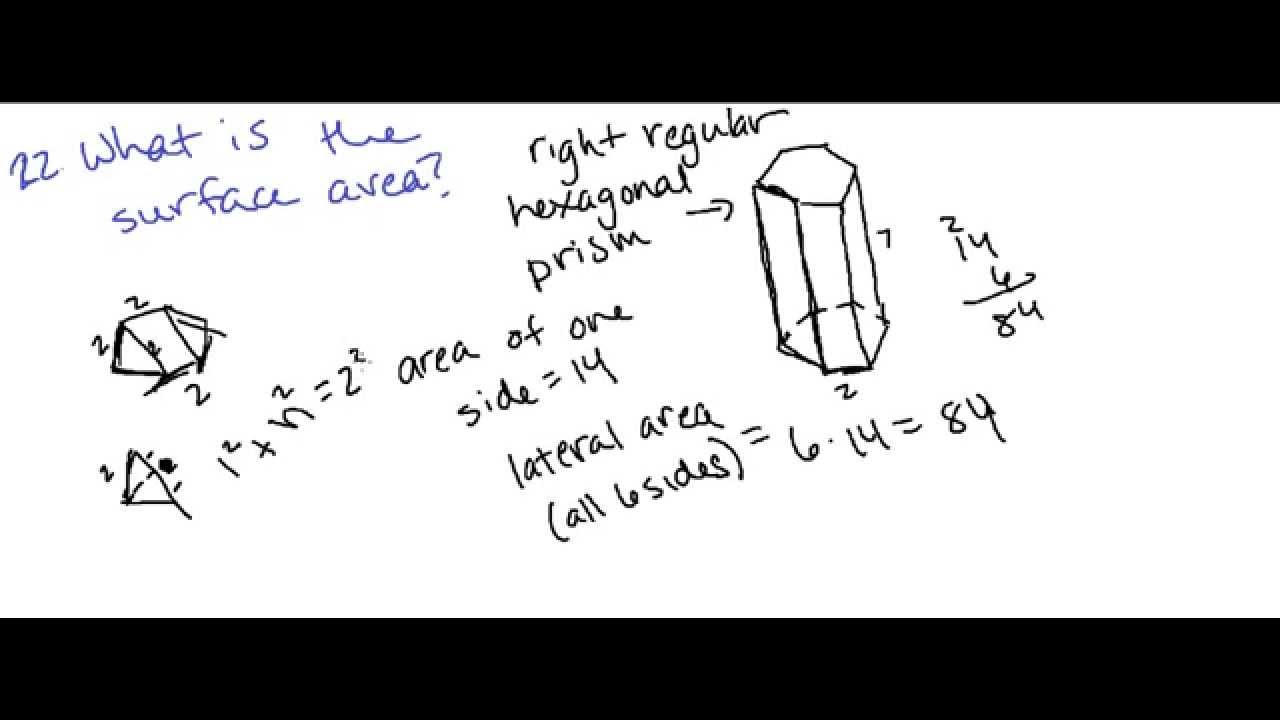 22. What is the
surface area?
right regular
hexagonal
prism →
7
2
14
6
84
2
2
2
2
2
1² × h² = 2²
area of one
side = 14
lateral area
(all 6 sides) = 6 · 14 = 84
2